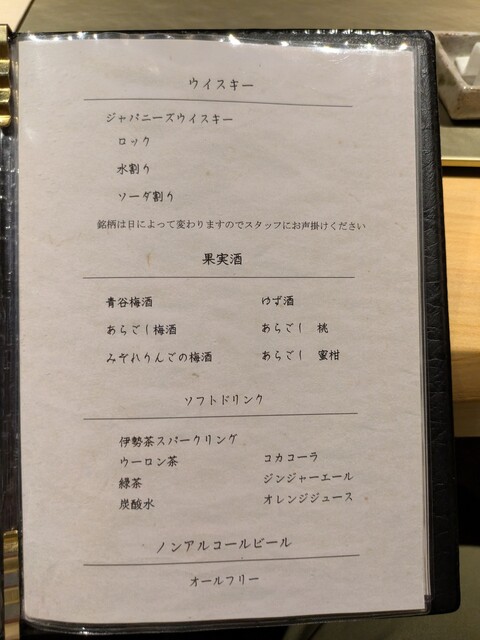 ウイスキー
ジャパニーズウイスキー
ロック
水割り
ソーダ割り
銘柄は日によって変わりますのでスタッフにお声掛けください
果実酒
青谷梅酒　ゆず酒
あらごし梅酒　あらごし　桃
みぞれりんごの梅酒　あらごし　蜜柑
ソフトドリンク
伊勢茶スパークリング
ウーロン茶　コカコーラ
緑茶　ジンジャーエール
炭酸水　オレンジジュース
ノンアルコールビール
オールフリー